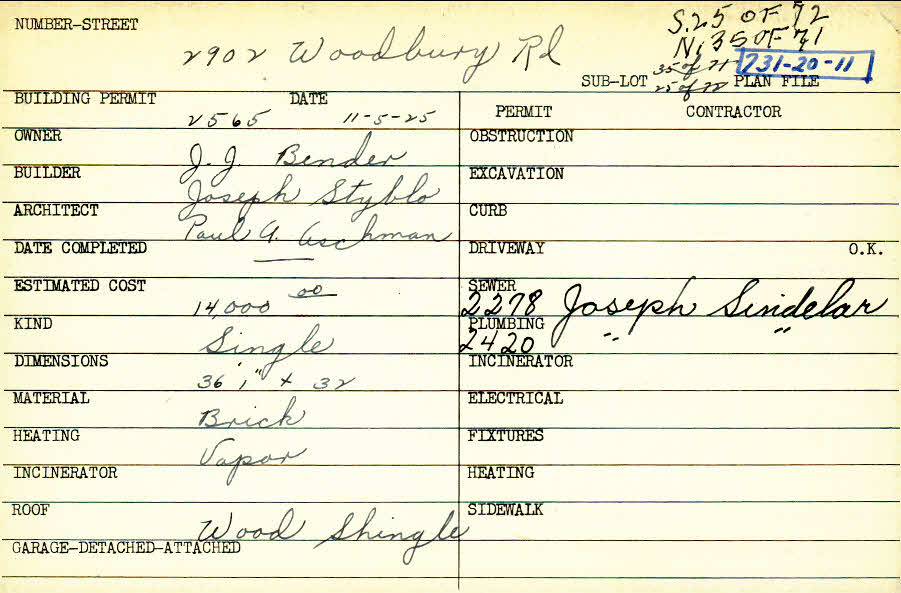 NUMBER-STREET
2902 Woodbury Rd
S. 25 OF 72
N. 35 OF 71
SUB-LOT 35 of 71 731-20-11
25 of 72 PLAN FILE
BUILDING PERMIT DATE
2565 11-5-25
PERMIT CONTRACTOR
OWNER J. J. Bender
OBSTRUCTION
BUILDER Joseph Styblo
EXCAVATION
ARCHITECT Paul G. Aschman
CURB
DATE COMPLETED —
DRIVEWAY O.K.
ESTIMATED COST 14,000 00
SEWER
2278 Joseph Sindelar
KIND Single
PLUMBING
2420 " "
DIMENSIONS 36' 1" + 32
INCINERATOR
MATERIAL Brick
ELECTRICAL
HEATING Vapor
FIXTURES
INCINERATOR
HEATING
ROOF Wood Shingle
SIDEWALK
GARAGE-DETACHED-ATTACHED